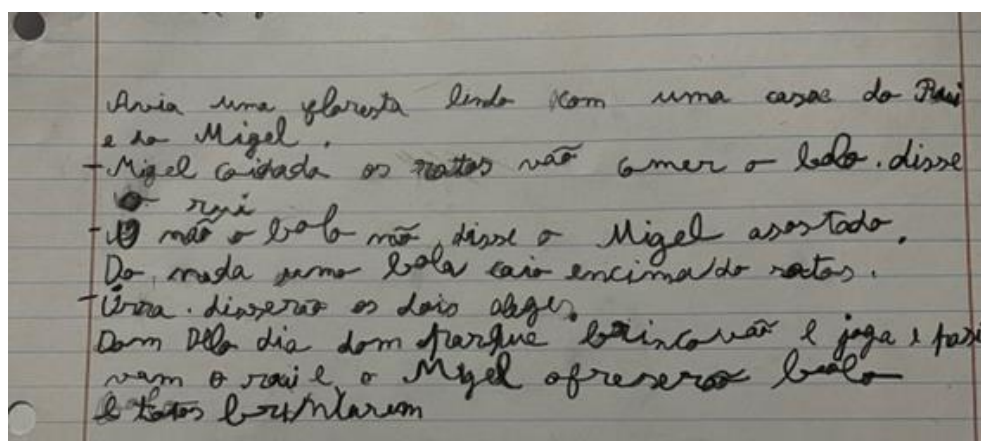 Avia uma floresta linda com uma casae do Rui
e do Migel.
- Migel cuidada os ratos vão comer o bolo. disse
o rui
- O não o bolo não, disse o Migel asostado.
Do nada uma bola caio encima do ratos.
- Urra. disserão os dois aleges.
dia parque brincavão e joga e fasi
vam o rui e, o Migel ofreserão bolo
e todos